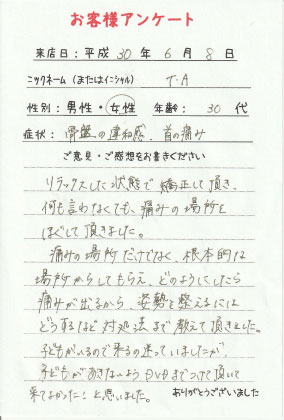 お客様アンケート
来店日：平成 30 年 6 月 8 日
ニックネーム（またはイニシャル） T.A
性別：男性・女性 年齢： 30 代
症状： 骨盤の違和感、首の痛み
ご意見・ご感想をお書きください
リラックスした状態で矯正して頂き、
何も言わなくても、痛みの場所を
ほぐして頂きました。
痛みの場所だけでなく、根本的な
場所からしてもらえ、どのようにしたら
痛みが出るから、姿勢を整えるには
どうするなど対処法まで教えて頂きました。
子どもがいるので来るの迷っていましたが、
子どもがあきないようDVDまでつけて頂いて
来てよかった！と思いました。
ありがとうございました